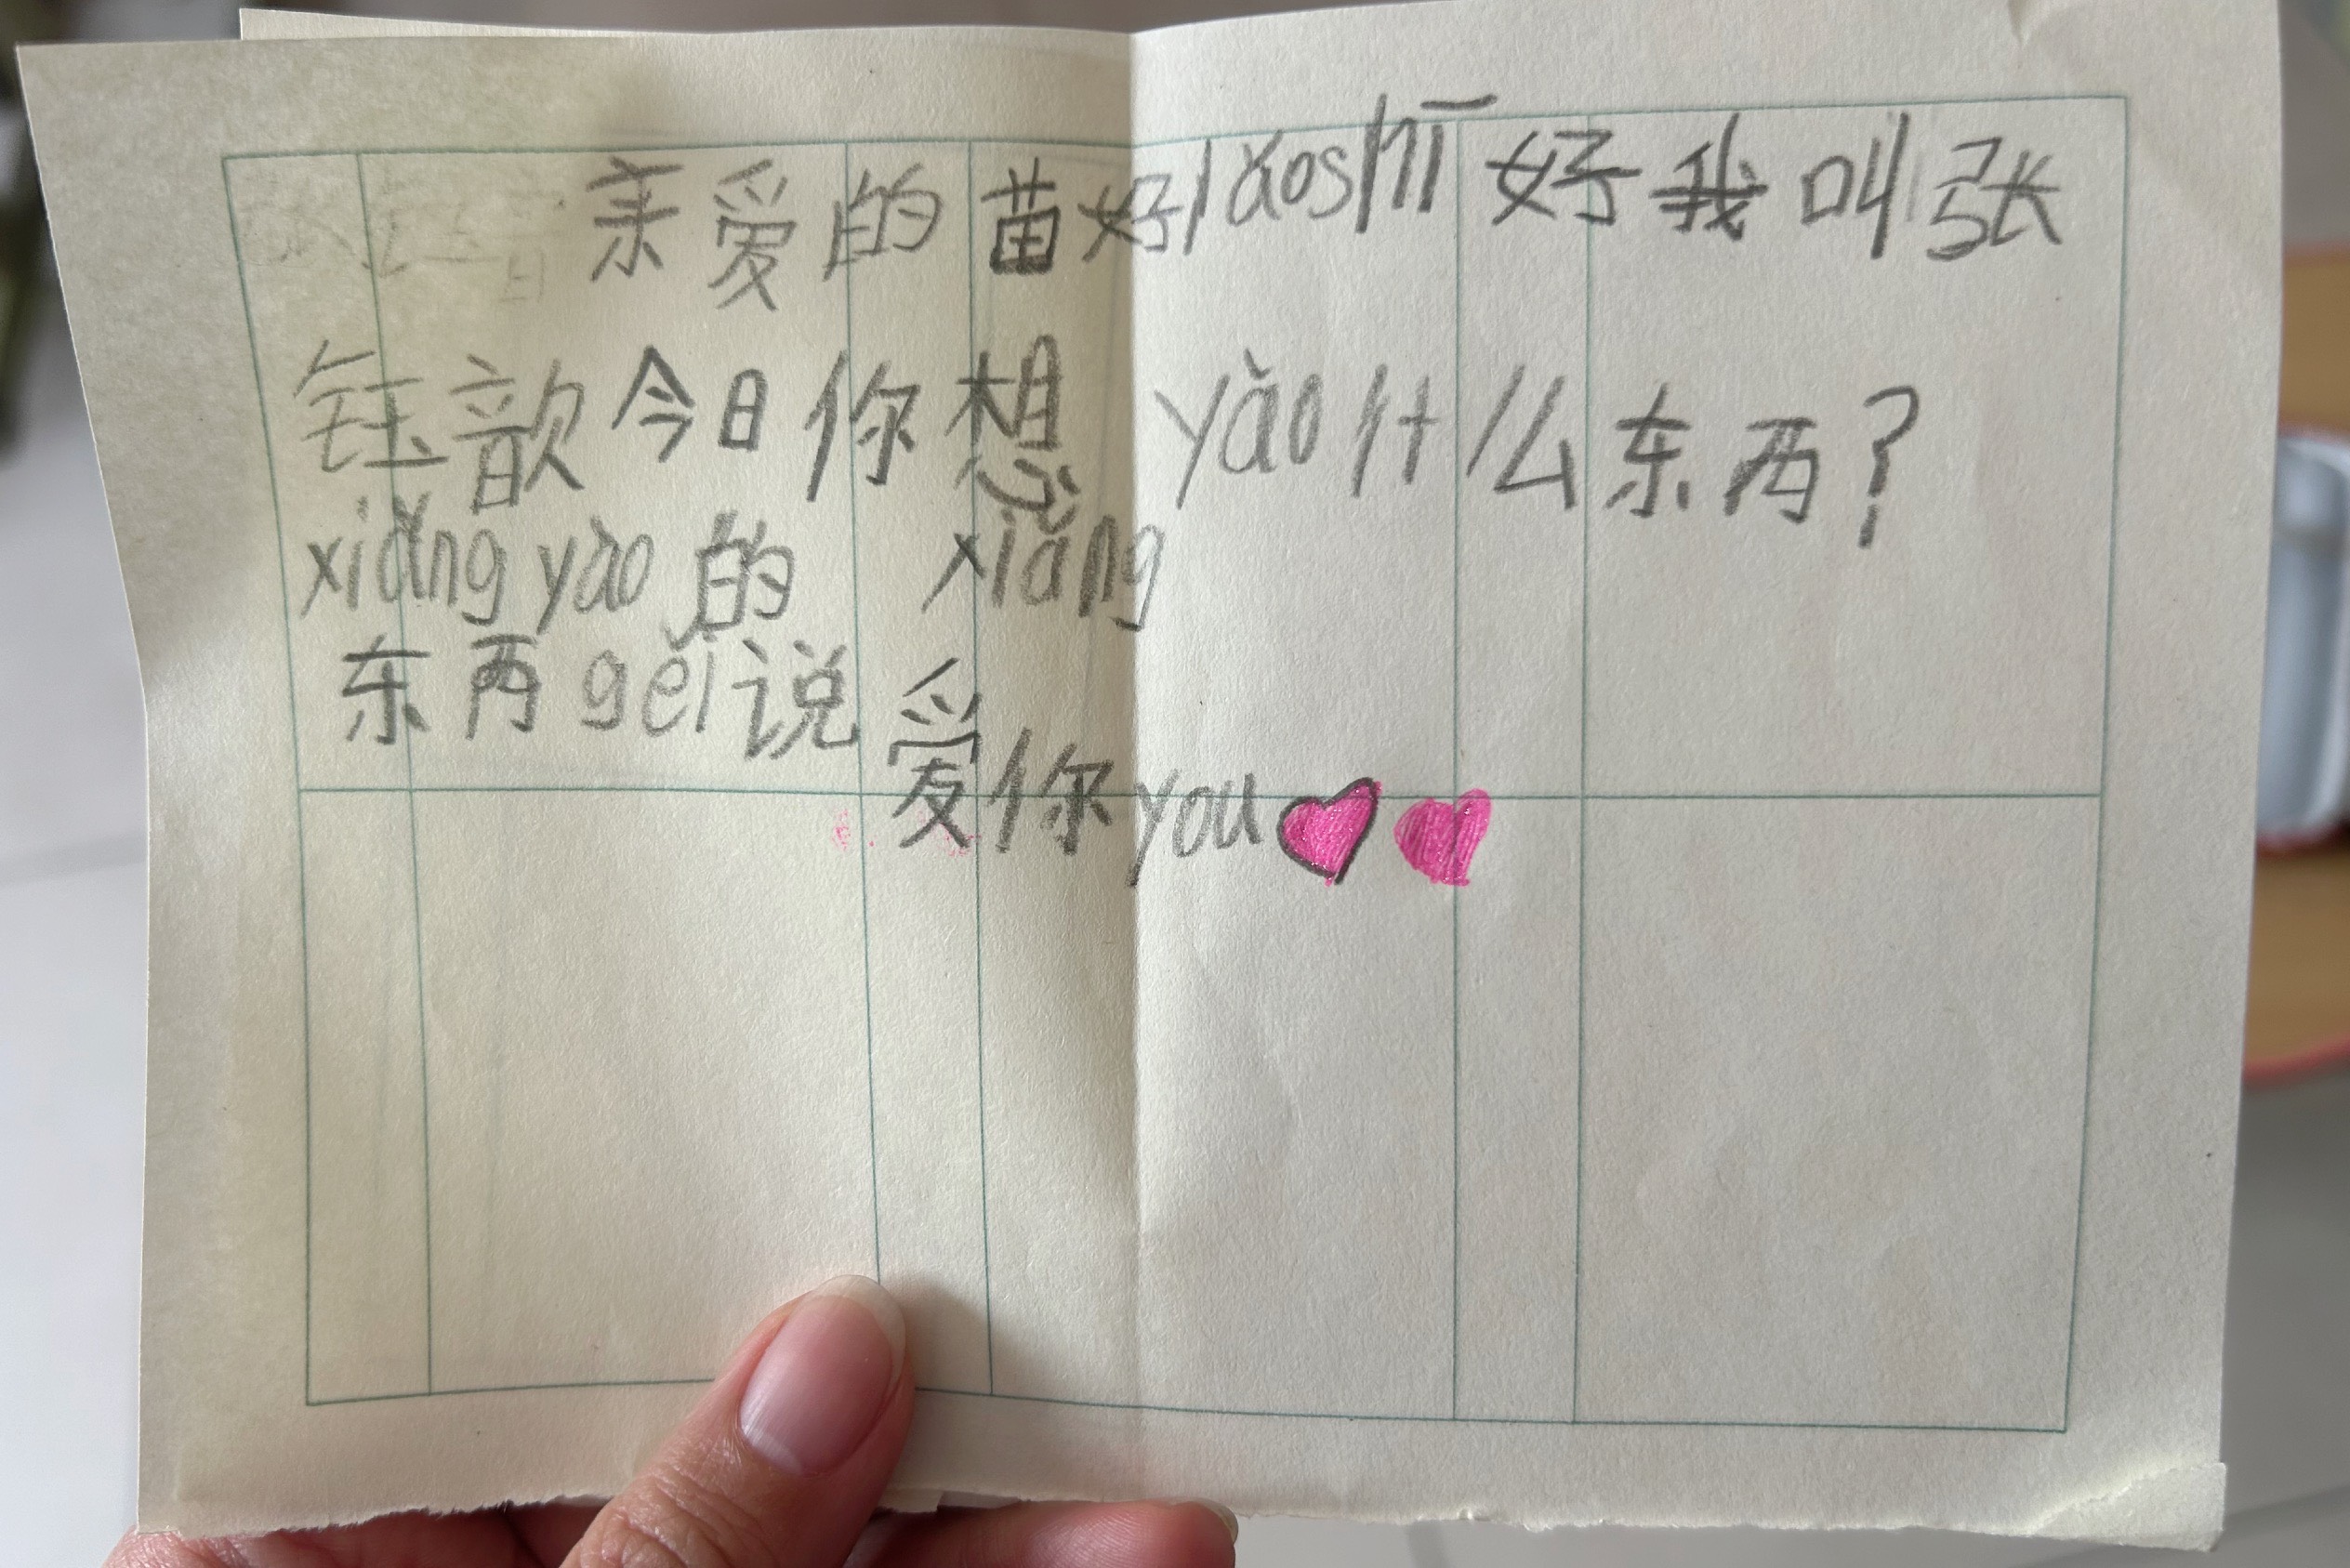 亲爱的苗好lǎoshī好我叫张
钰歆今日你想yào什么东西？
xiǎng yào的 xiǎng
东西gěi说
爱你you